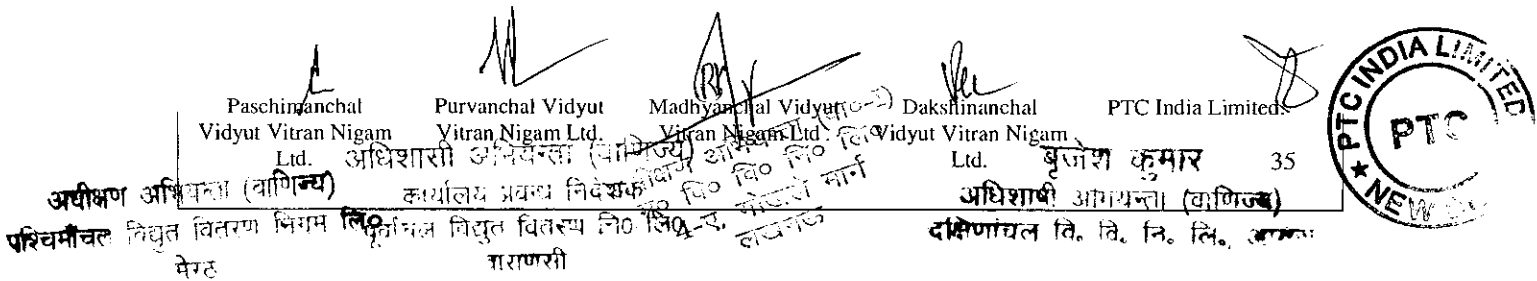 Paschimanchal Vidyut Vitran Nigam Ltd.
Purvanchal Vidyut Vitran Nigam Ltd.
Madhyanchal Vidyut Vitran Nigam Ltd.
Dakshinanchal Vidyut Vitran Nigam Ltd.
PTC India Limited.
35
अधीक्षण अभियन्ता (वाणिज्य)
पश्चिमाँचल विद्युत वितरण निगम लि०
मेरठ
अधिशासी अभियन्ता (वाणिज्य)
कार्यालय प्रबन्ध निदेशक
पूर्वांचल विद्युत वितरण नि० लि०
वाराणसी
अधीक्षण अभियन्ता
म० वि० वि० नि० लि०
4-ए, गोखले मार्ग
लखनऊ
बृजेश कुमार
अधिशाषी अभियन्ता (वाणिज्य)
दक्षिणांचल वि. वि. नि. लि.,
PTC INDIA LIMITED
PTC
★ NEW